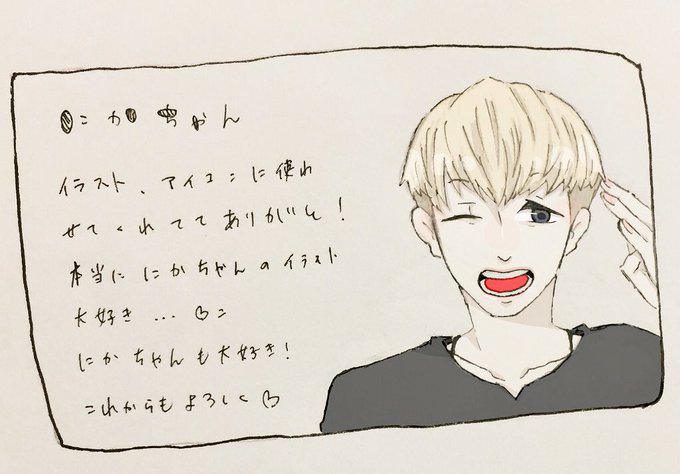 にかちゃん
イラスト、アイコンに使わ
せてくれてて ありがとう！
本当に にかちゃんのイラスト
大好き…♡ニ
にかちゃんも大好き！
これからもよろしく♡